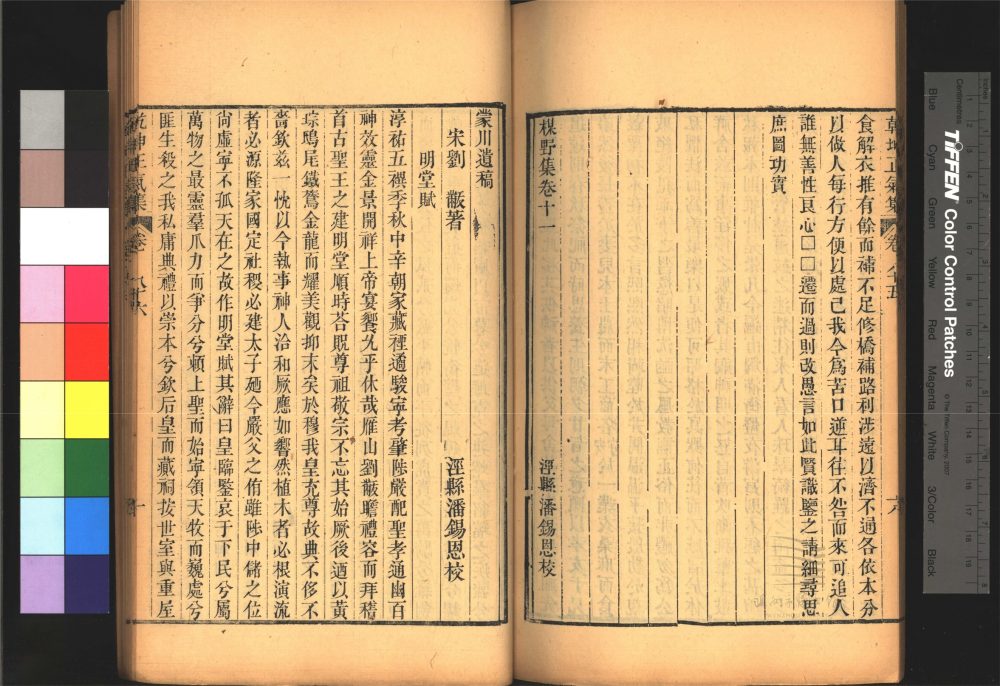 食解衣推有餘而補不足修橋補路利涉遠以濟不通各依本分
以做人每行方便以處己我今爲苦口逆耳往不咎而來可追人
誰無善性良心□□遷而過則改愚言如此賢識鑒之請細尋思
庶圖功實
楳野集卷十一
涇縣潘錫恩校
乾坤正氣集
卷八十五
蒙川遺稿
宋劉黻著
涇縣潘錫恩校
明堂賦
淳祐五禩季秋中辛朝家藏禋遹駿寧考肇陟嚴配聖孝通幽百
神效靈金景開祥上帝宴饗久乎休哉雁山劉黻瞻禮容而拜稽
首古聖王之建明堂順時荅貺尊祖敬宗不忘其始厥後迺以黃
琮鴟尾鐵鷟金龍而耀美觀抑末矣於穆我皇充尊故典不侈不
嗇欽茲一忱以今執事神人洽和厥應如響然植木者必根演流
者必源隆家國定社稷必建太子廼今嚴父之侑雖陟中儲之位
尚虛寧不孤天在之故作明堂賦其辭曰皇臨鑒哀于下民兮屬
萬物之最靈羣爪力而爭分兮賴上聖而始寧領天牧而巍處兮
匪生殺之我私庸典禮以崇本兮欽后皇而藏祠按世室與重屋
乾坤正氣集
卷八十六
TIFFEN Color Control Patches
© The Tiffen Company, 2007
Blue
Cyan
Green
Yellow
Red
Magenta
White
3/Color
Black
Inches
Centimetres